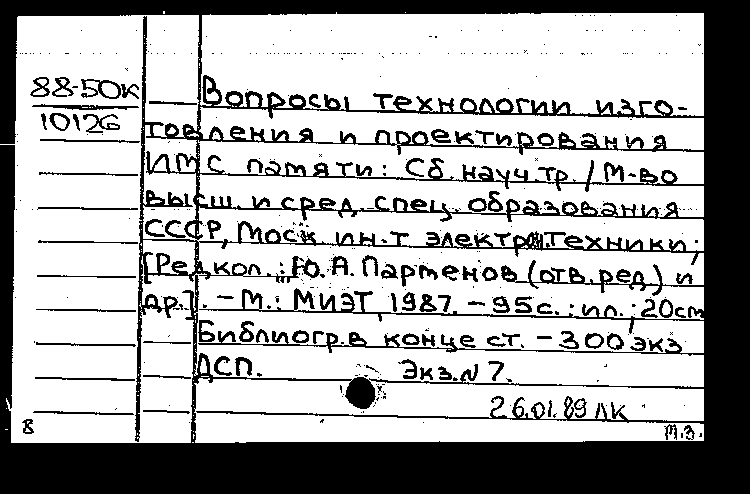 88-50к
10126
Вопросы технологии изго-
товления и проектирования
ИМС памяти: Сб. науч. тр. / М-во
высш. и сред. спец. образования
СССР, Моск. ин-т электрон. техники;
[Редкол.: Ю. А. Парменов (отв. ред.) и
др.]. - М.: МИЭТ, 1987. - 95 с.: ил.; 20 см
Библиогр. в конце ст. - 300 экз
ДСП. Экз. N 7.
26.01.89 ЛК
В м.з.